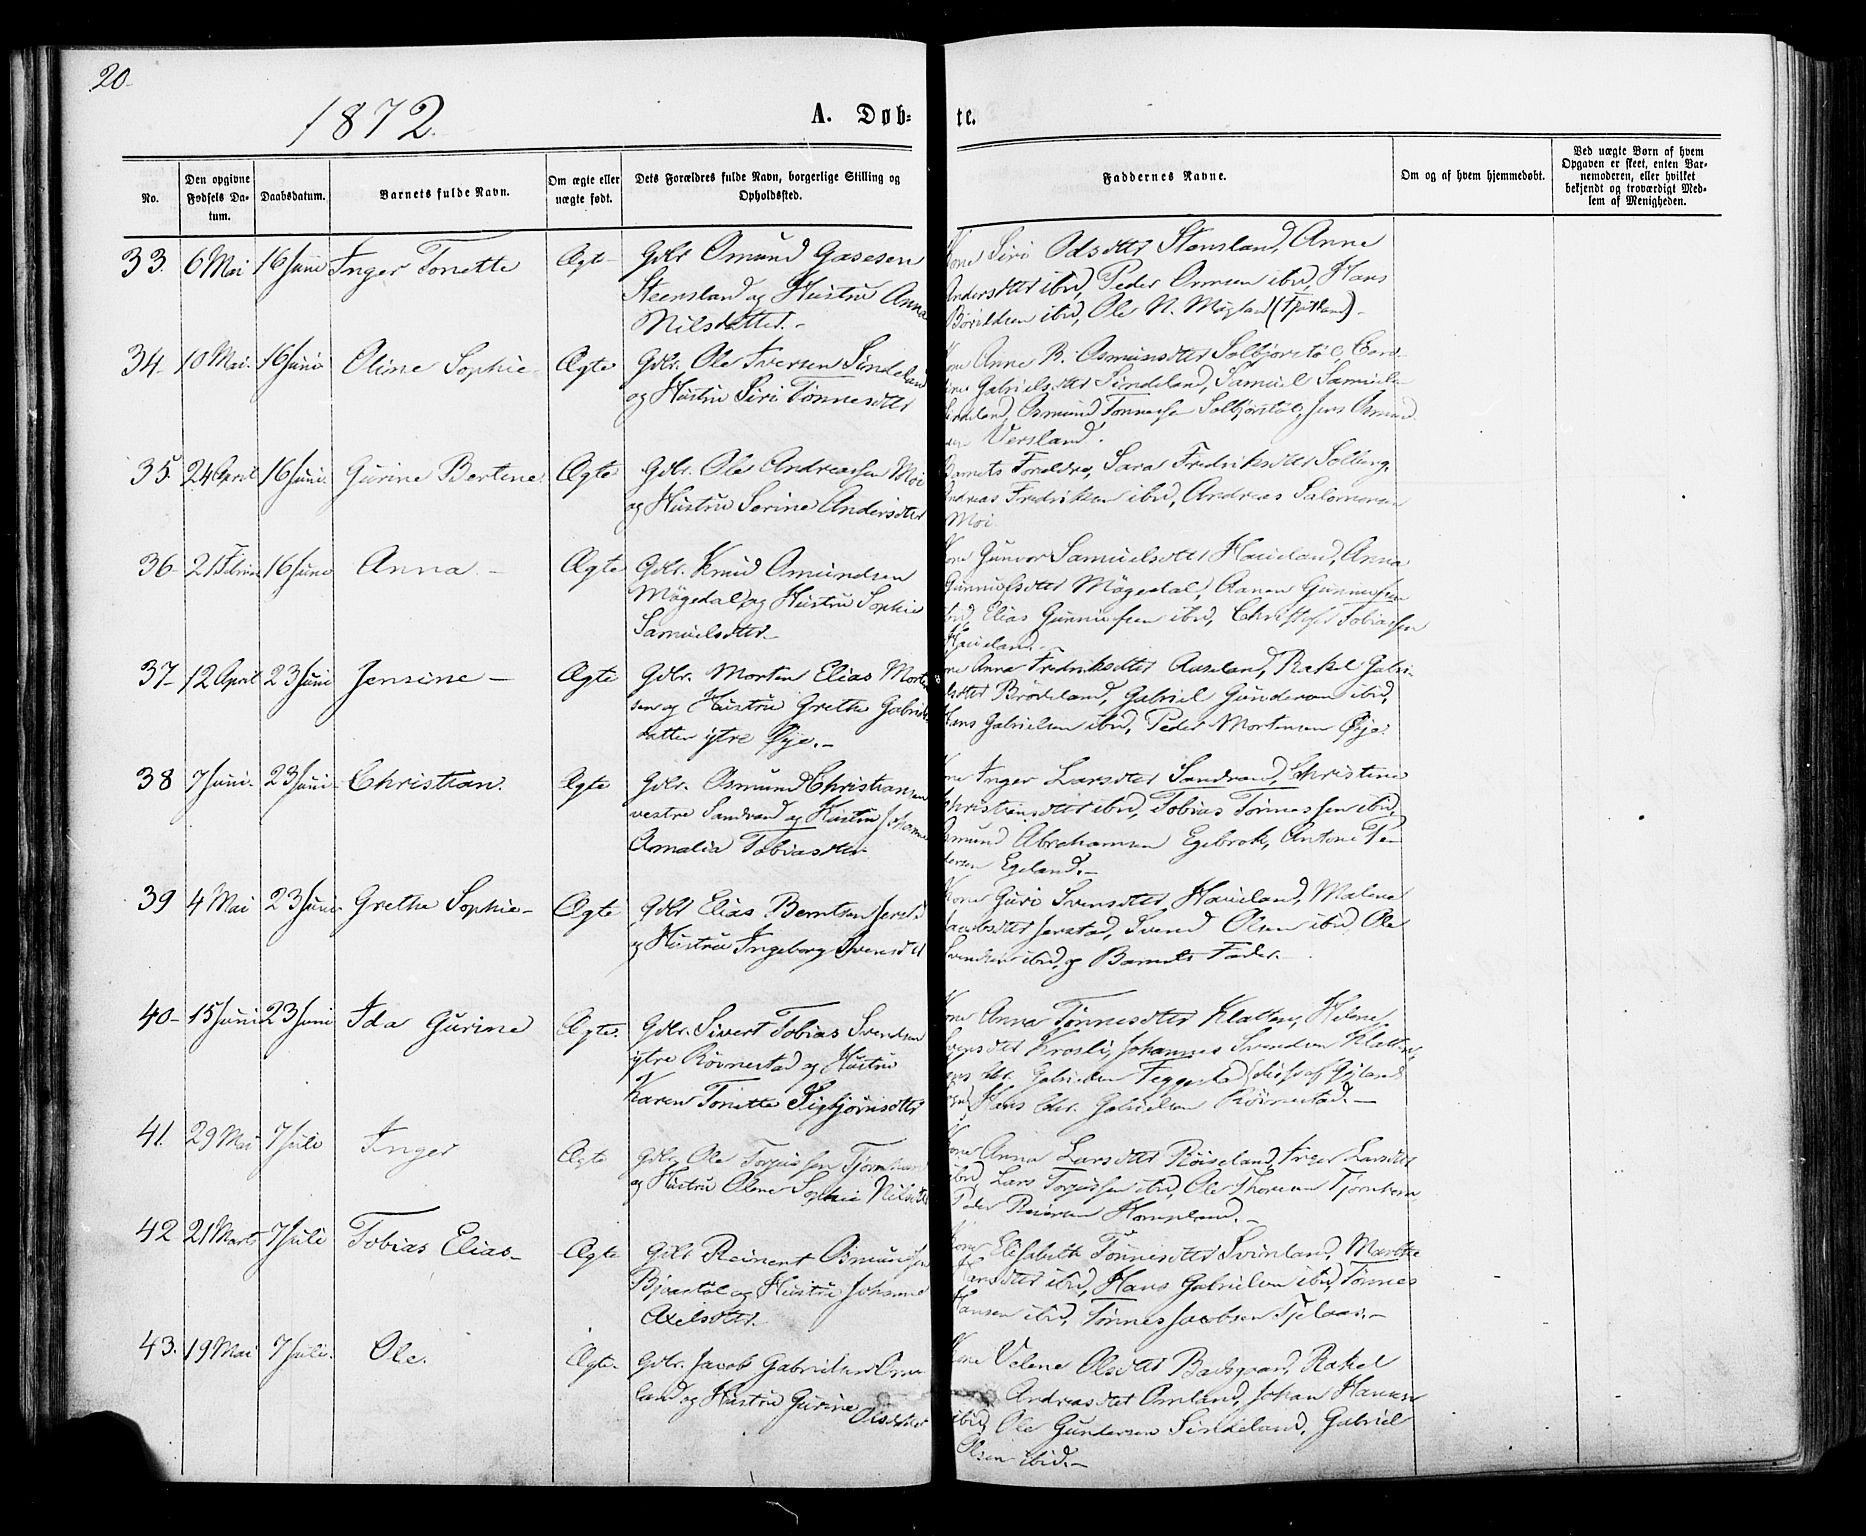 20.
1872.
A. Døb-
te.
No.
Den opgivne Fødsels Da-tum.
Daabsdatum.
Barnets fulde Navn.
Om ægte eller uægte født.
Dets Forældres fulde Navn, borgerlige Stilling og Opholdssted.
Faddernes Navne.
Om og af hvem hjemmedøbt.
Ved uægte Børn af hvem Opgaven er skeet, enten Barnemoderen, eller hvilket bekjendt og troværdigt Medlem af Menigheden.
33. 6 Mai 16 Juni Inger Tonette Ægte
Gdbr Omund Gasesen
Steensland og Hustru Anna
Nilsdatter.-
Kone Siri Odsdtter Stensland, Anne
Andersdtter ibid, Peder Omsen ibid, Hans
ibid, Ole N. Møgland
34. 10 Mai. 16 Juni Oline Sophie Ægte
Gdbr. Ole Iversen Sindeland
og Hustru Siri Tønnesdtter
Kone Anne B. Osmunsdtter Solbjorstøl,
Gabrielsdtter Sindeland, Samuel Samuels
Osmund Tønnesen Solbjørstøl, Jens Osmund
Versland.
35. 24 April 16 Juni. Gurine Bertine. Ægte
Gdbr. Ole Andreassen Moi
og Hustru Serine Andersdtter
Barnets Forældre, Sara Fredriksdtter Solberg,
Andreas Fredriksen ibid, Andreas Salomonsen
Moi
36- 21 Februar 16 Juni Anna.- Ægte
Gdbr. Knud Omundsen
Møgedal, og Hustru Sophie
Samuelsdtter
Kone Gunvor Samuelsdtter Haueland, Anna
Gunnufsdtter Møgedal, Aanen Gunnufsen
ibid, Elias Gunnufsen ibid, Christoffer Tobiassen
Haueland.
37- 12 April 23 Juni Jensine- Ægte
Gdbr. Morten Elias Morten
sen og Hustru Grethe Gabriels
datter ytre Øye.-
Kone Anna Fredriksdtter Auseland, Rakel Gabri-
elsdtter Brødeland, Gabriel Gundersen ibid,
Hans Gabrielsen ibid, Peder Mortensen Øye.
38 7 Juni. 23 Juni Christian. Ægte
Gdbr. Osmund Christiansen
vestre Sandvand og Hustru Johanne
Amalia Tobiasdtter
Kone Inger Larsdtter Sandvand, Christine
Christensdtter ibid, Tobias Tønnessen ibid,
Osmund Abrahamsen Egebrok, Antoni Pe-
dersen Egeland.-
39 4 Mai 23 Juni Grethe Sophie- Ægte
Gdbr Elias Berntsen Jerstad
og Hustru Ingeborg Svensdtter
Kone Guri Svensdtter Haueland, Malene
Jacobsdtter Jerstad, Svend Olsen ibid Ole
Svendsen ibid, og Barnets Fader.-
40- 15 Juni 23 Juni Ida Gurine Ægte.
Gdbr. Sivert Tobias Svendsen
ytre Røvnestad og Hustru
Karen Tonette Sigbjørnsdtter
Kone Anna Tønnesdtter Klatten, Helene
Svensdtter Krosli, Johannes Svendsen Klatten,
Gabrielsen Feggestad
Hans Chr. Gabrielsen Røvnestad.-
41. 29 Mai 7 Juli Inger Ægte
Gdbr Ole Torjussen Tjomhom
og Hustru Olene Sophie Nilsdtter
Kone Anna Larsdtter Røiseland, Inger Larsdtter
ibid, Lars Torjussen ibid, Ole Thorsen Tjomhom
Peder Reiersen Hompland.-
42 21 Marts 7 Juli Tobias Elias- Ægte
Gdbr Reinert Osmundsen
Bjorstøl og Hustru Johanne
Axelsdtter.
Kone Elisabeth Tønnesdtter Svinland, Marthe
Hansdtter ibid, Hans Gabrielsen ibid, Tønnes
Hansen ibid, Tønnes Jacobsen Fjelaas.-
43. 19 Mai 7 Juli. Ole. Ægte-
Gdbr. Jacob Gabrielsen Om-
land og Hustru Gurine
Olsdatter
Kone Velene Olsdtter Bakgaard, Rakel
Andreasdtter Omland, Johan Hansen
ibid, Ole Gundersen Sindeland, Gabriel
Olsen ibid.-